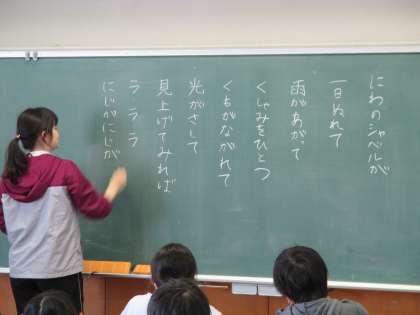 にわのシャベルが
一日ぬれて
雨があがって
くしゃみをひとつ
くもがながれて
光がさして
見上げてみれば
ラララ
にじがにじが